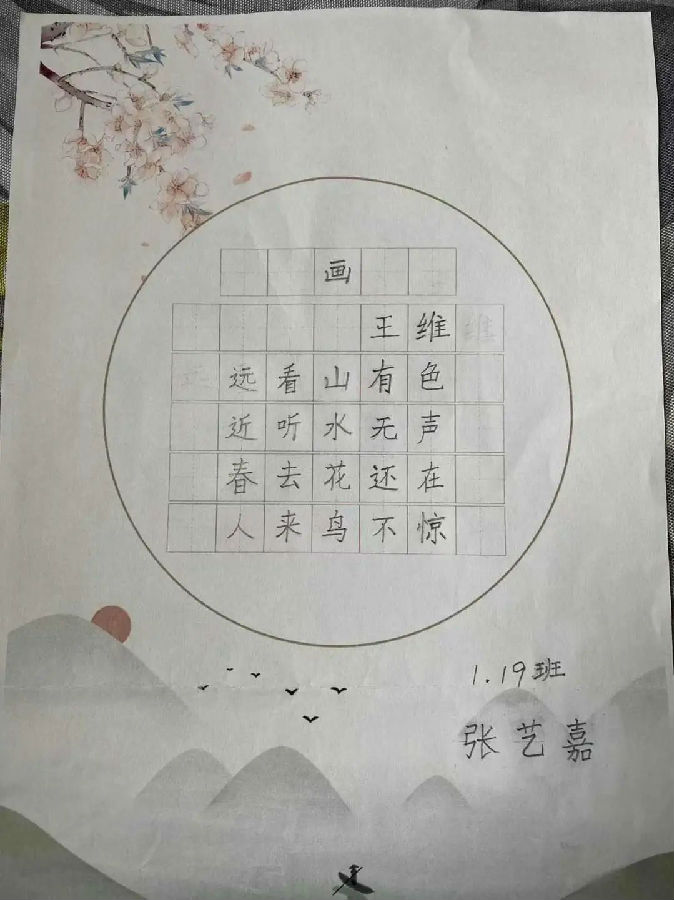 画
王维
远看山有色
近听水无声
春去花还在
人来鸟不惊
1.19班
张艺嘉